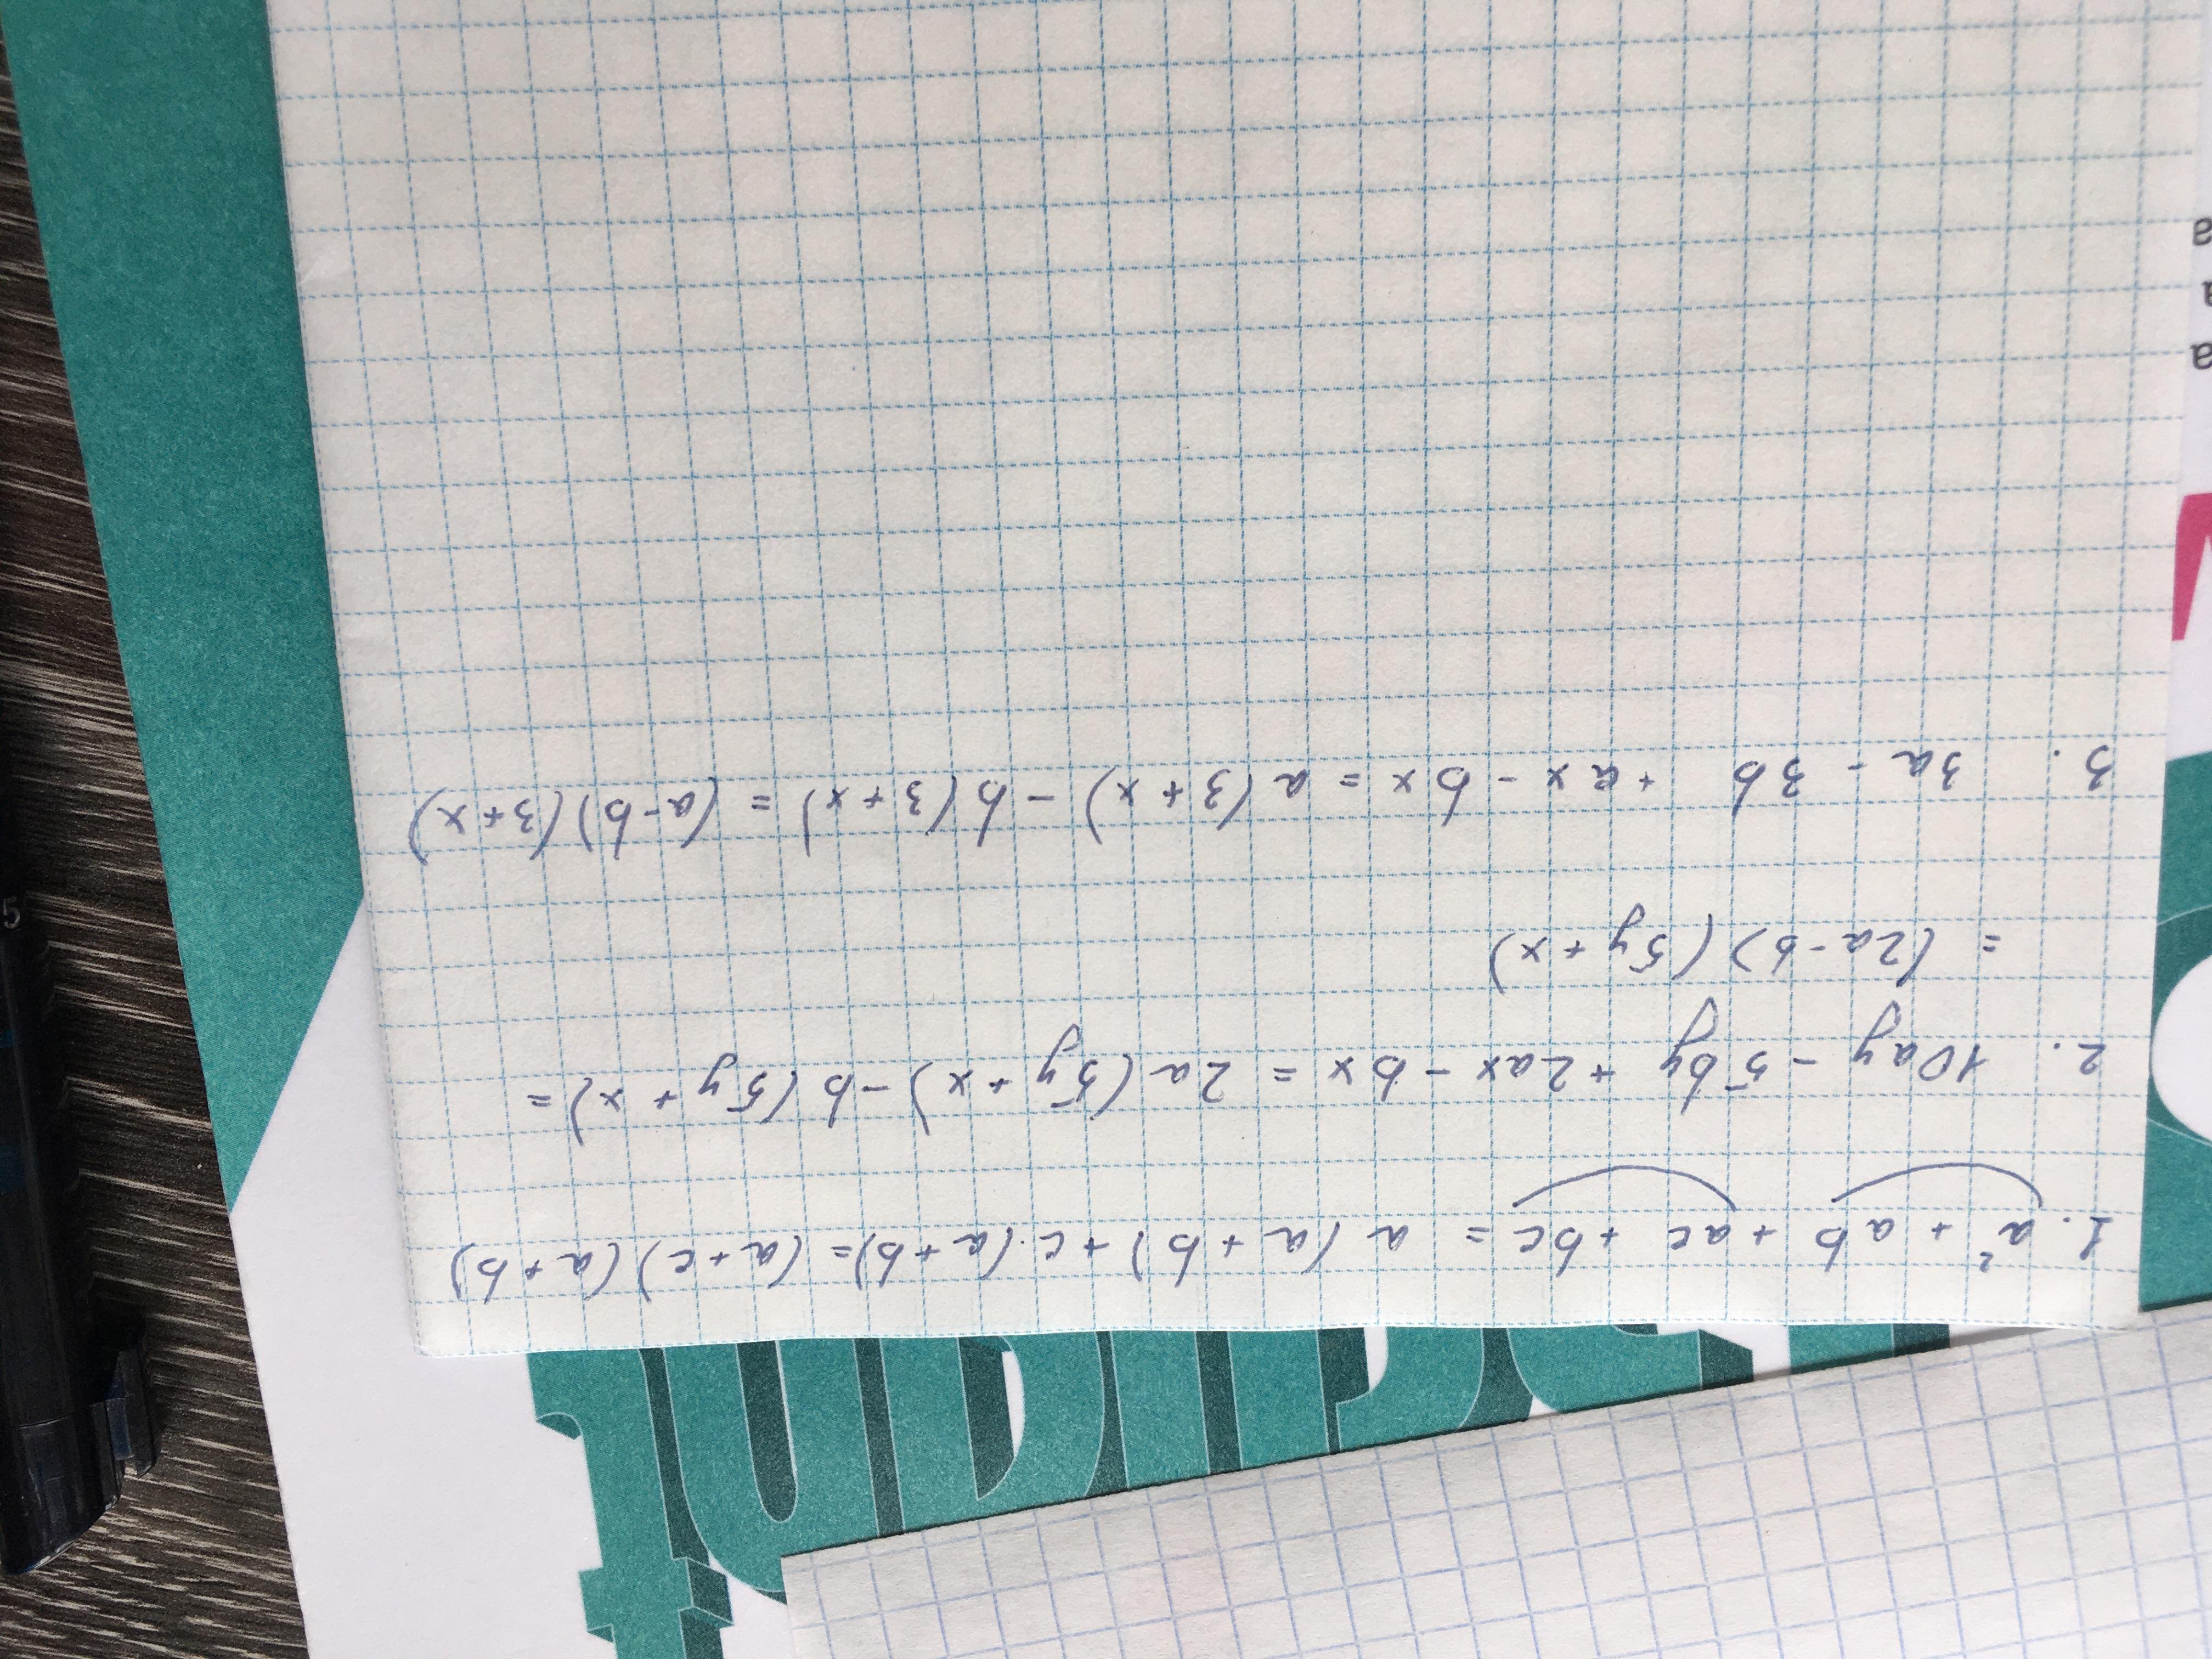 1. a² + ab + ac + bc = a (a + b) + c · (a + b) = (a + c) (a + b)
2. 10ay - 5by + 2ax - bx = 2a (5y + x) - b (5y + x) =
= (2a - b) (5y + x)
3. 3a - 3b + ax - bx = a (3 + x) - b (3 + x) = (a - b) (3 + x)
a
a
a
5